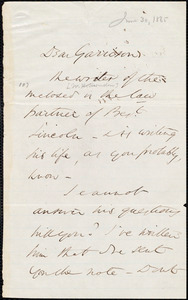 Dear Garrison
The writer of the
enclosed is the law
partner of Prest
Lincoln - is writing
his life, as you probably
know -
I cannot
answer his questions
will you? I've written
him that I've sent
you the note - Don't